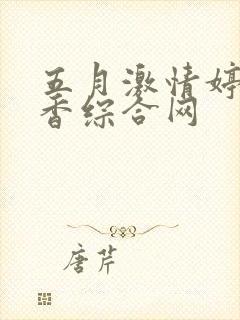 五月激情婷
香综合网
唐芹